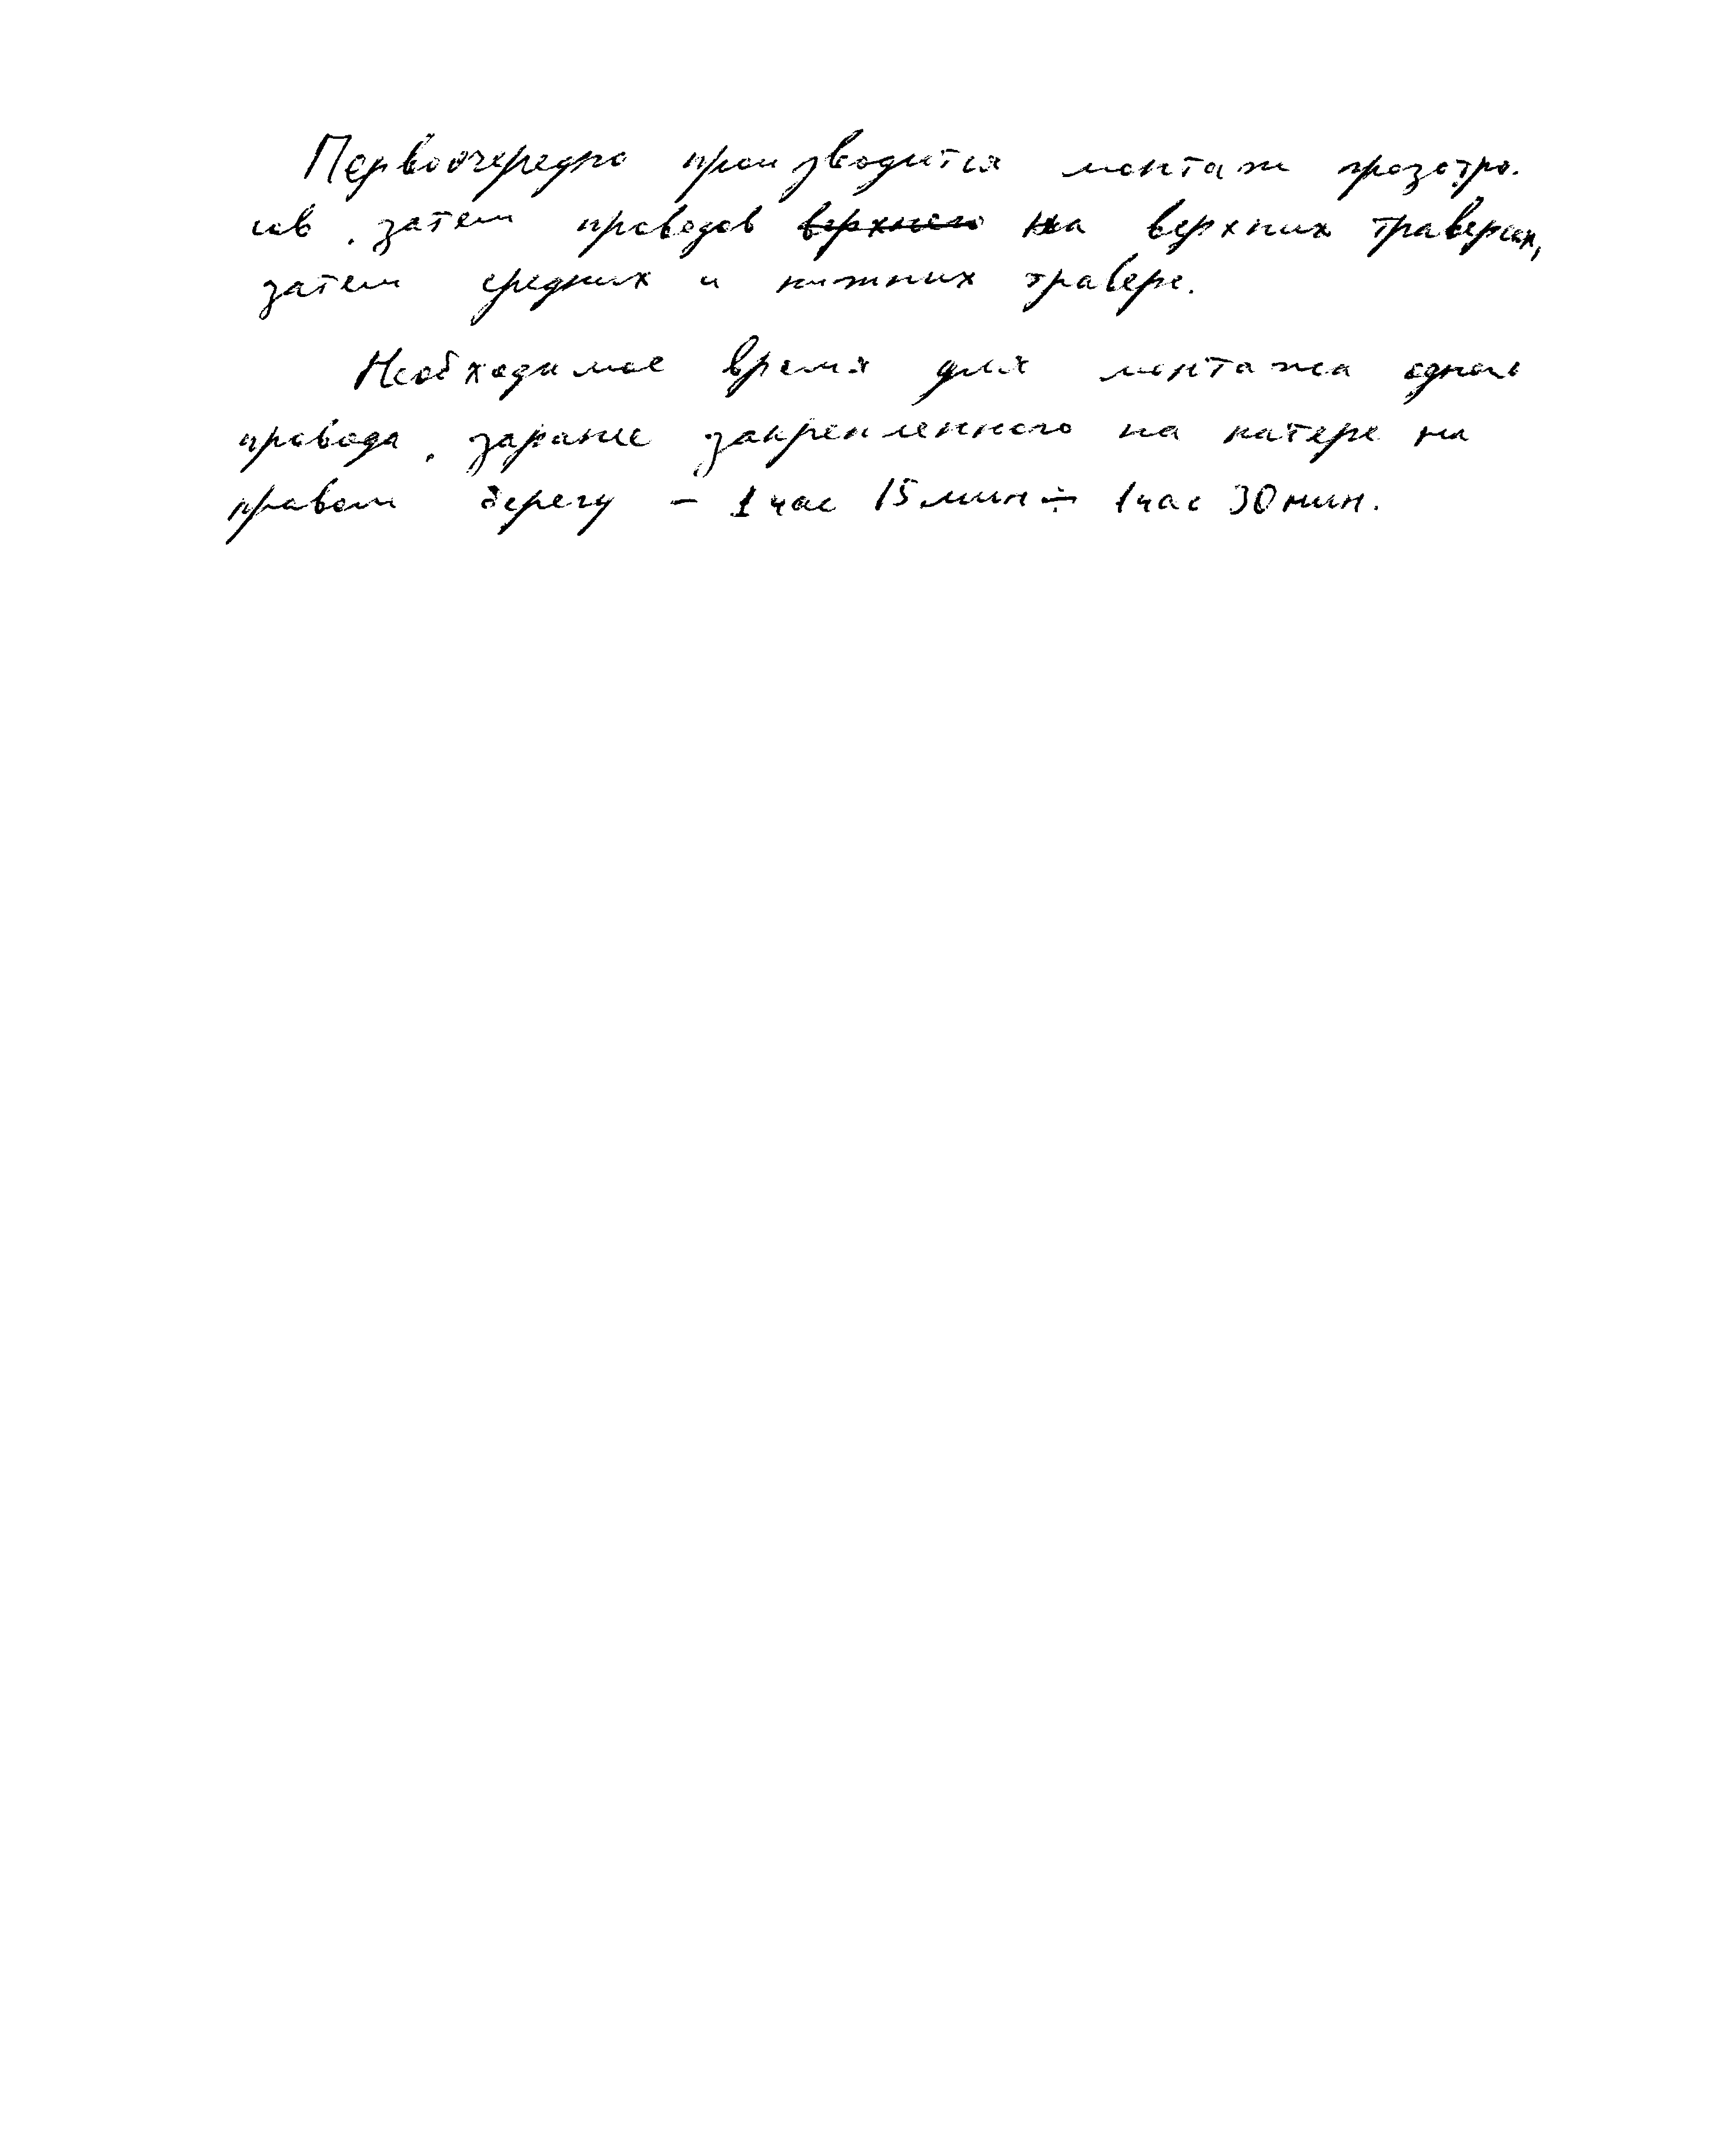 Первоочередно производится монтаж грозотро-
сов, затем проводов ~~верхнего~~ на верхних траверсах,
затем средних и нижних траверс.
Необходимое время для монтажа одного
провода, заранее закрепленного на катере на
правом берегу – 1 час 15 мин ÷ 1 час 30 мин.